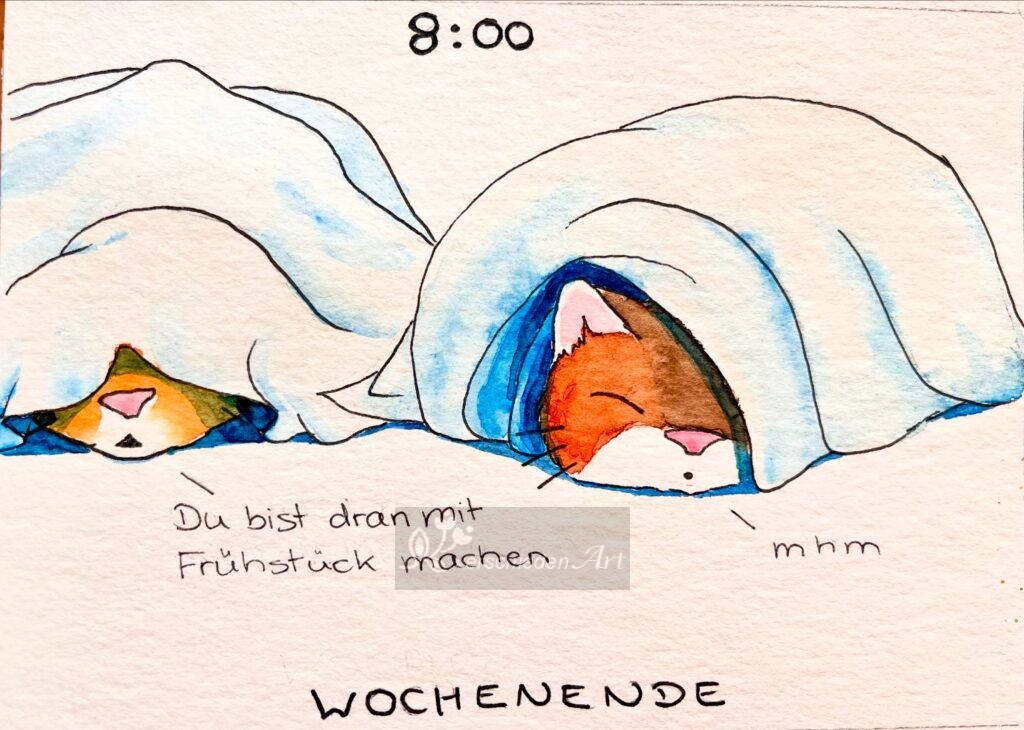 8:00
Du bist dran mit
Frühstück machen
mhm
erschieden Art
WOCHENENDE